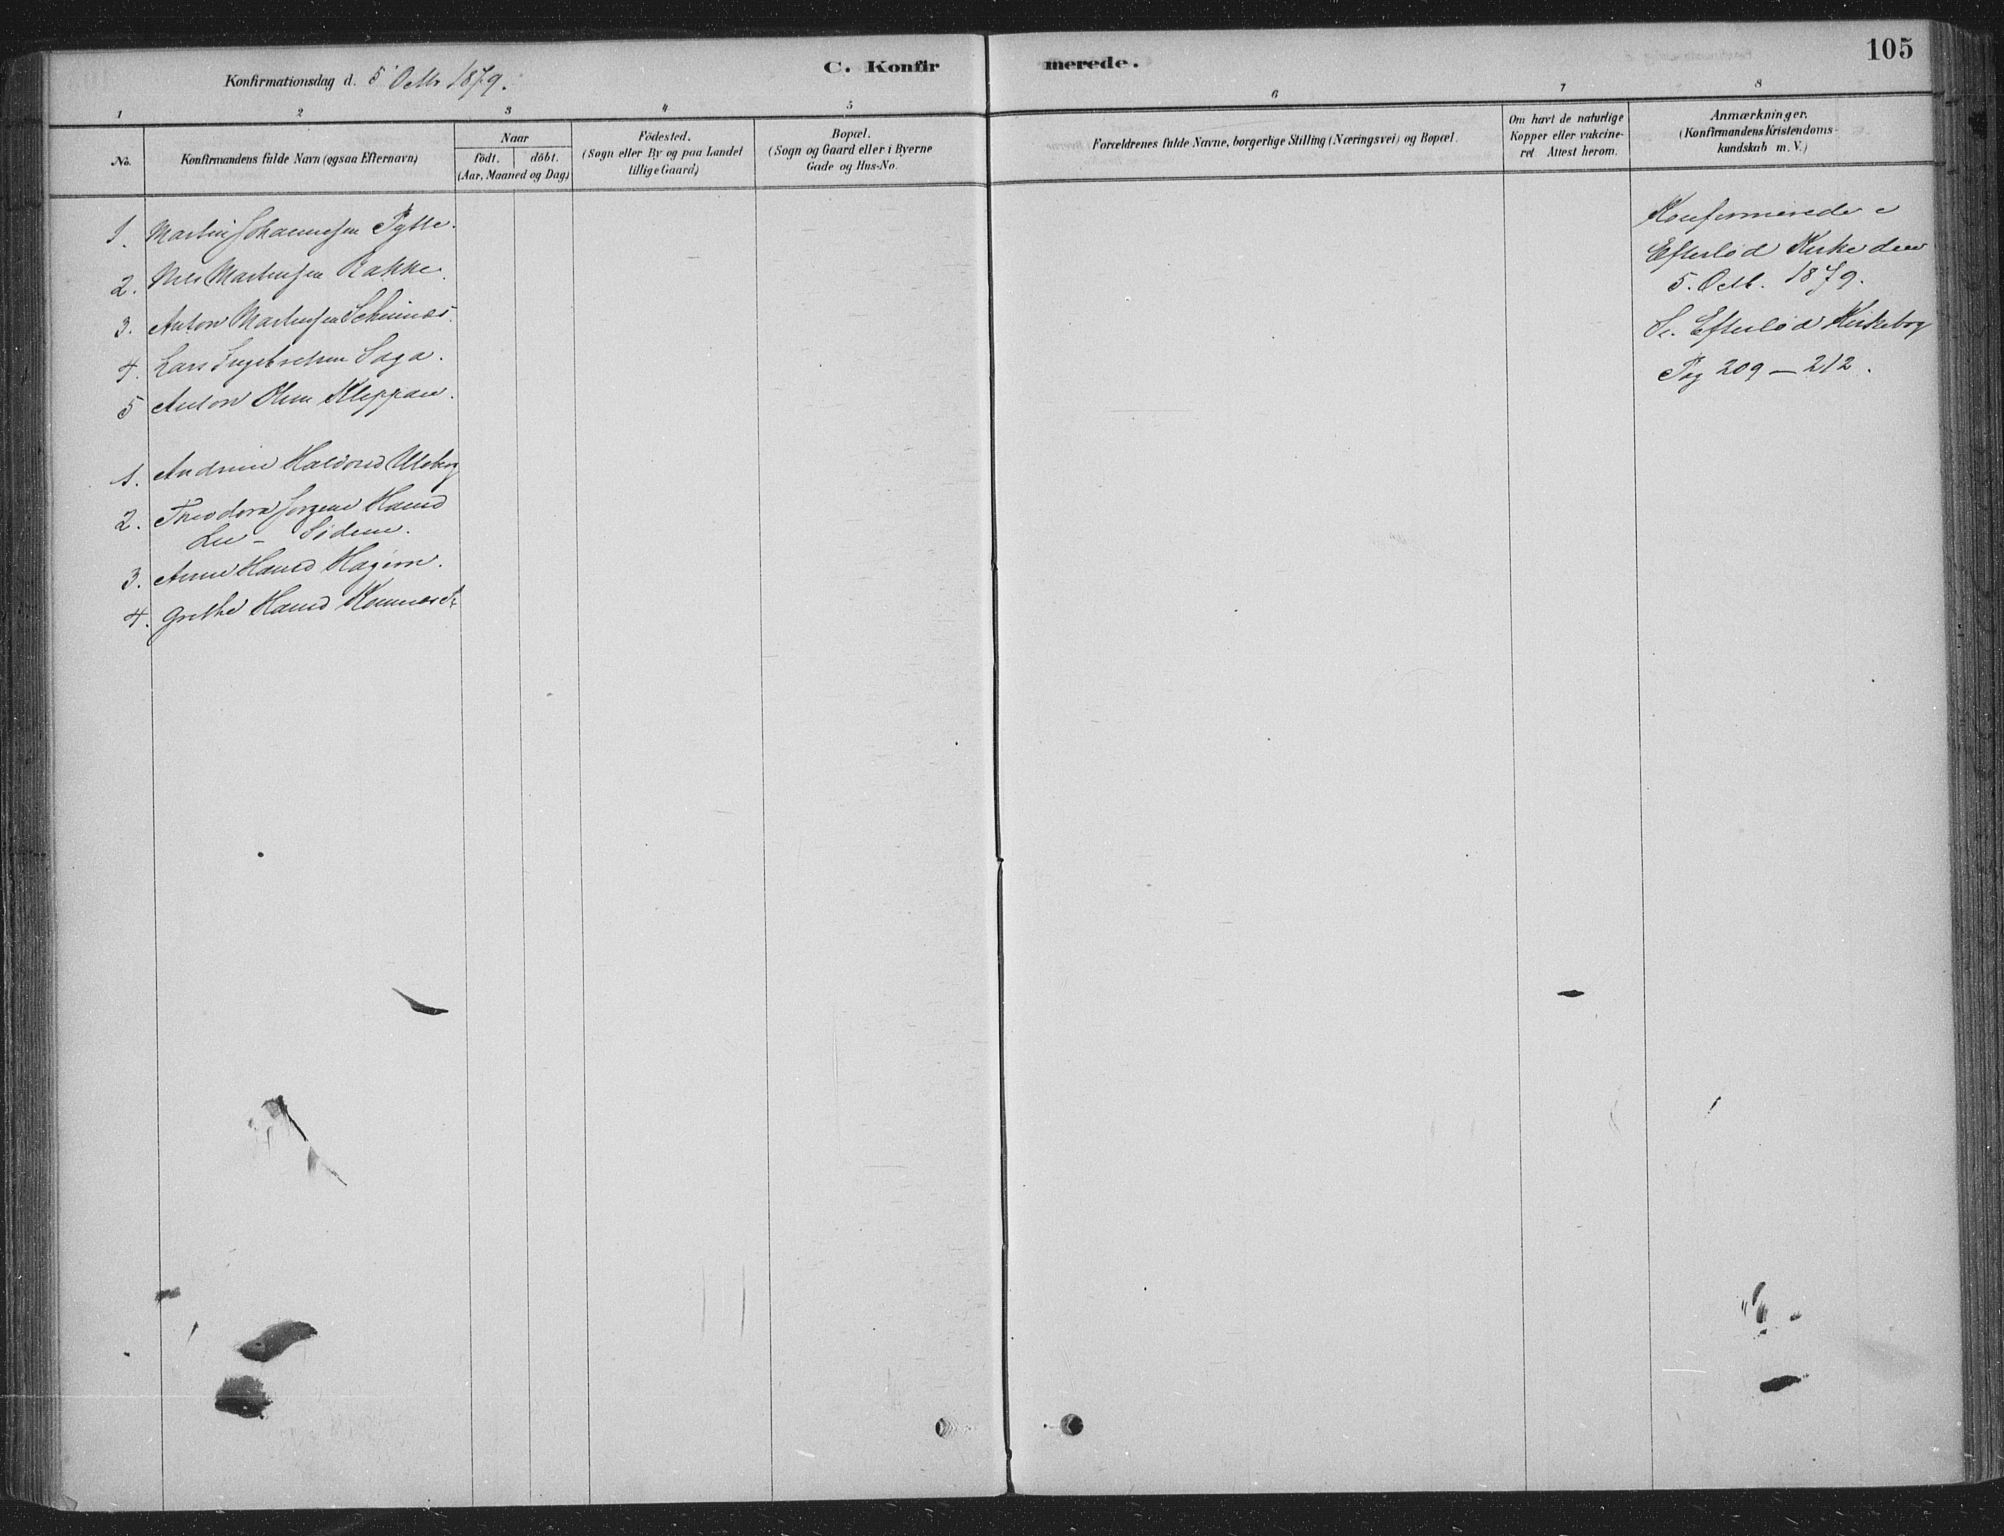 105
C. Konfirmerede.
Konfirmationsdag d. 5 Octbr 1879.
1 2 3 4 5 6 7 8
No.
Konfirmandens fulde Navn (ogsaa Efternavn)
Naar
födt. döbt.
(Aar, Maaned og Dag)
Födested.
(Sogn eller By og paa Landet
tillige Gaard)
Bopæl.
(Sogn og Gaard eller i Byerne
Gade og Hus-No.
Forældrenes fulde Navne, borgerlige Stilling (Næringsvei) og Bopæl.
Om havt de naturlige
Kopper eller vakcine-
ret. Attest herom.
Anmærkninger.
(Konfirmandens Kristendoms-
kundskab m. V.)
1. Martin Johannesen Pytte.
2. Nils Martinsen Bakke.
3. Anton Martinsen
4. Lars Ingebretsen Saga.
5 Anton Olsen Kleppan.
1. Andrine Halvorsd Ulsberg
2. Theodora Jorgene Hansd
Lie -
3. Anne Hansd Hagern.
4. Grethe Hansd
Konfirmerede i
Efterlød Kirke den
5. Octb. 1879.
Se. Efterlød Kirkebog
Pag 209 - 212.